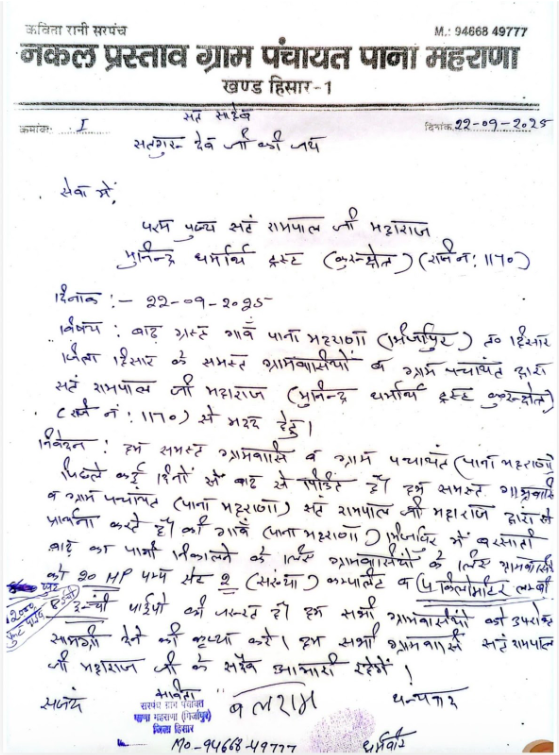 कविता रानी सरपंच
M.: 94668 49777
नकल प्रस्ताव ग्राम पंचायत पाना महराणा
खण्ड हिसार-1
क्रमांक: I
दिनांक 22-09-2025
सत साहेब
सतगुरु देव जी की जय
सेवा में,
परम पुज्य सतं रामपाल जी महाराज
मुनिन्द्र धर्मार्थ ट्रस्ट (कुरुक्षेत्र) (रजि नं: 1170)
दिनांक :- 22-09-2025
विषय : बाढ़ ग्रस्त गावँ पाना महराणा (मिर्जापुर) त0 हिसार
जिला हिसार के समस्त ग्रामवासियों व ग्राम पंचायत द्वारा
सतं रामपाल जी महाराज (मुनिन्द्र धर्मार्थ ट्रस्ट कुरुक्षेत्र)
(रजि नं : 1170) से मदद हेतु।
निवेदन : हम समस्त ग्रामवासि व ग्राम पंचायत (पाना महराणा)
पिछले कई दिनों से बाढ़ से पीडित है। हम समस्त ग्रामवासि
व ग्राम पंचायत (पाना महराणा) सतं रामपाल जी महाराज द्वारा से
प्रार्थना करते है। की गावँ (पाना महराणा) मिर्जापुर में बरसाती
बाढ़ का पानी निकालने के लिए ग्रामवासियों के लिए ग्रामवासियों
को 20 HP पम्प सेट 2 (संख्या) कम्पलीट व (4 किलोमीटर लम्बी
12000 फुट पाईप 8 इन्ची
इन्ची पाईपो की जरूरत है। हम सभी ग्रामवासियों को उपरोक्त
सामग्री देने की कृप्या करें। हम सभी ग्रामवासि सतं रामपाल
जी महाराज जी के सदैव आभारी रहेगें!
कविता
सरपंच ग्राम पंचायत
पाना महराणा (मिर्जापुर)
जिला हिसार
बलराम
धन्यवाद
धर्मवीर
MO-94668-49777